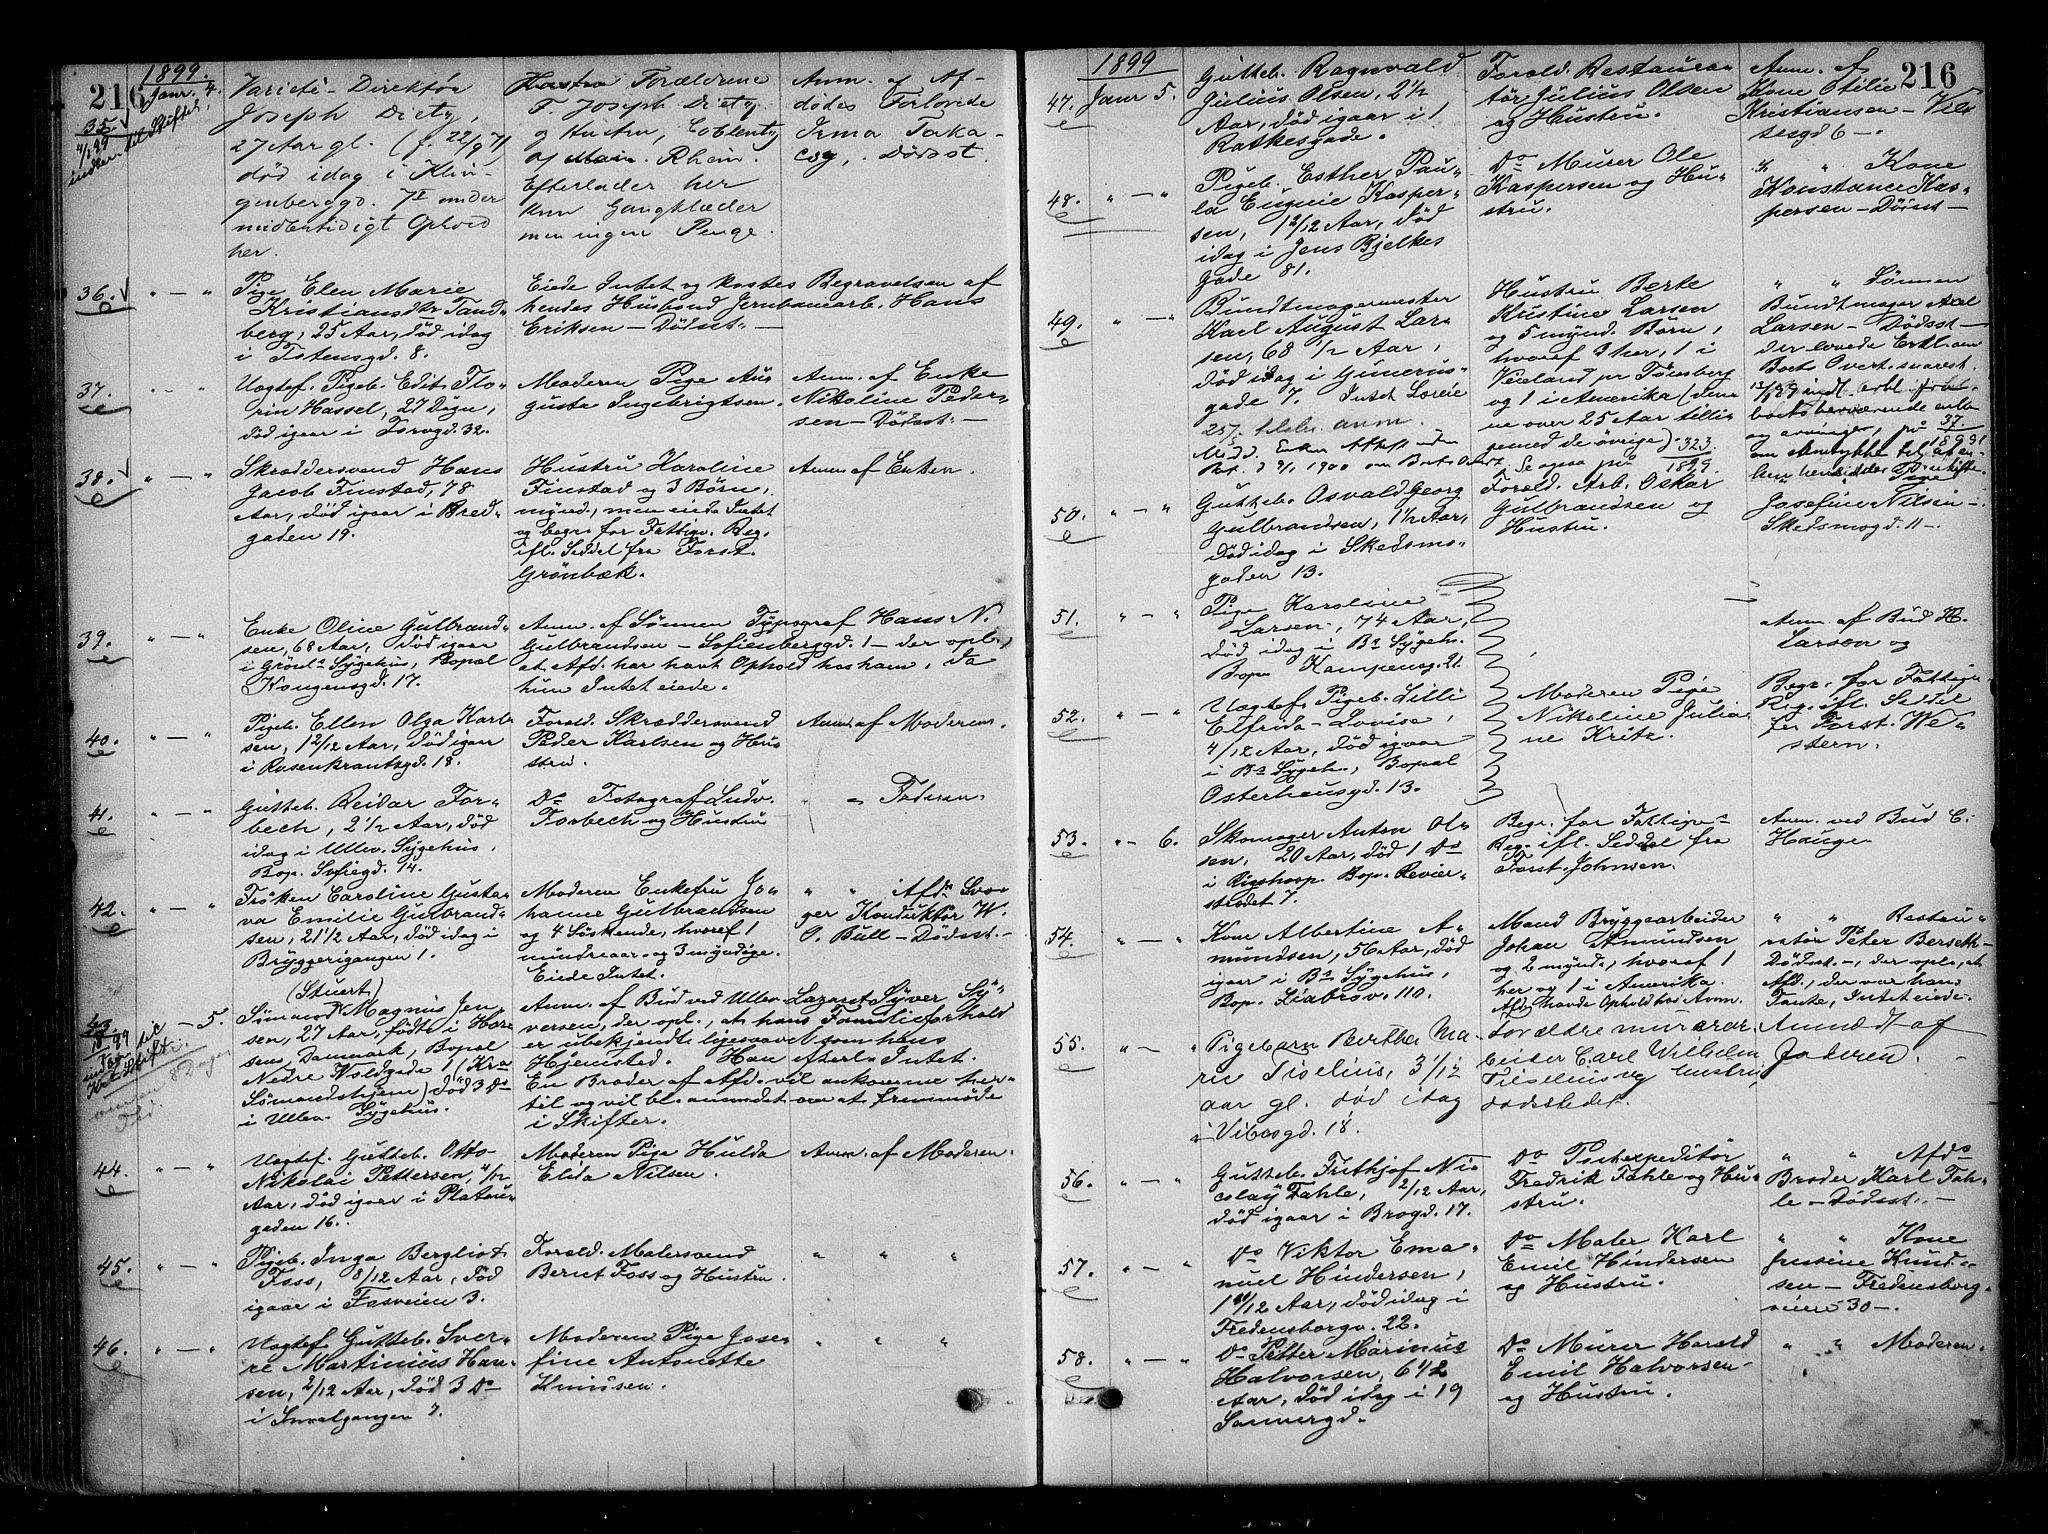 216
1899.
Janr. 4.
35.
4/1 99
indber. til Skifter,
Varieté-Direktør
Joseph Dietz,
27 Aar gl. (f. 22/9 71)
død idag i Klin-
genberggd. 7 II under
midlertidigt Ophold
her.
Forældrene
F. Joseph Dietz
og Hustru, Coblentz
Rhein.
Efterlader her
kun Gangklæder
men ingen Penge.
Anm. af Af-
dødes Forlovede
Irma Taka-
Dødsst.
36.
" — "
Pige Elen Marie
Kristiansdtr Tand-
berg, 25 Aar, død idag
i Totensgd. 8.
Eiede Intet og kostes Begravelsen af
hendes Husbond Jernbanearb. Hans
Eriksen — Dødsst. —
37.
" — "
Uægtef. Pigeb. Edit Flo-
rin Hassel, 27 Døgn,
død igaar i Torvgd. 32.
Moderen Pige Au-
gusta Ingebrigtsen.
Anm. af Enke
Nikoline Peder-
sen — Dødsst. —
38.
" — "
Skræddersvend Hans
Jacob Finstad, 78
Aar, død igaar i Bred-
gaden 19.
Hustru Karoline
Finstad og 3 Børn,
mynd., men eiede Intet
og begr. for Fattigv. Reg.
ifl. Seddel fra Forst.
Grønbæk.
Anm. af Enken.
39.
" — "
Enke Oline Gulbrand-
sen, 68 Aar, død igaar
i Grønl. Sygehus, Bopæl
Kongensgd. 17.
Anm. af Sønnen Typograf Hans N.
Gulbrandsen — Sofienberggd. 1 — der opl.,
at Afd. har havt Ophold hos ham, da
hun Intet eiede.
40.
" — "
Pigeb. Ellen Olga Karl-
sen, 1 2/12 Aar, død igaar
i Rosenkrantsgd. 18.
Foræld. Skræddersvend
Peder Karlsen og Hu-
stru.
Anm. af Moderen.
41.
" — "
Gutteb. Reidar For-
bech, 2 1/2 Aar, død
idag i Ullev. Sygehus,
Bop. Sofiegd. 14.
Do Fotograf Ludv.
Forbech og Hustru
" " Faderen.
42.
" — "
Frøken Caroline Gusta-
va Emilie Gulbrand-
sen, 21 1/2 Aar, død idag i
Bryggerigangen 1.
Moderen Enkefru Jo-
hanne Gulbrandsen
og 4 Søskende, hvoraf 1
mindreaar. og 3 myndige.
Eiede Intet.
" " Afds Svo-
ger Konduktør W.
O. Bull — Dødsst. —
43.
— 5.
(Stuert)
Sømand Magnus Jen-
sen, 27 Aar, født i Hor-
sens, Danmark, Bopæl
Nedre Voldgade 1 (Kra
Sømandshjem), død 3 Ds
i Ullev. Sygehus.
Anm. af Bud ved Ullev. Lazaret Syver Sy-
versen, der opl., at hans Familieforhold
er ubekjendt ligesaavel som hans
Hjemsted. Han efterl. Intet.
En Broder af Afd. vil ankomme her-
til og vil bl. anmodet om at fremmøde
i Skifter.
44.
" — "
Uægtef. Gutteb. Otto
Nikolai Pettersen, 4/12
Aar, død igaar i Platou-
gaden 16.
Moderen Pige Hulda
Elida Nilsen.
Anm. af Moderen.
45.
" — "
Pigeb. Inga Bergliot
Foss, 8/12 Aar, død
igaar i Fosveien 3.
Foræld. Malersvend
Bernt Foss og Hustru.
" " "
46.
" — "
Uægtef. Gutteb. Sver-
re Martinius Han-
sen, 2/12 Aar, død 3 Ds
i Smalgangen 7.
Moderen Pige Jose-
fine Antonette
Knudsen.
" " "
216
1899
47.
Janr 5.
Gutteb. Ragnvald
Julius Olsen, 2 1/2
Aar, død igaar i 1
Ratkesgade.
Foræld. Restaura-
tør Julius Olsen
og Hustru.
Anm. af
Kone Otilie
Kristiansen —
6 —.
48.
" — "
Pigeb. Esther Pau-
la Eugenie Kasper-
sen, 1 2/12 Aar, død
idag i Jens Bjelkes
Gade 81.
Do Murer Ole
Kaspersen og Hu-
stru.
" " Kone
Konstance Kas-
persen — Dødsst —
49.
" — "
Bundtmagermester
Karl August Lar-
sen, 68 1/2 Aar,
død idag i Gunerus-
gade 7.
Hustru Berte
Kristine Larsen
og 5 mynd. Børn,
hvoraf 3 her, 1 i
Veieland pr Tønsberg
og 1 i Amerika (denne
over 25 Aar tilli-
gemed de øvrige)
Se ogsaa pr. 323
1899.
" " Sønnen
Bundtmager Axel
Larsen — Dødsst —
der lovede Erkl. om
50.
" — "
Gutteb. Osvald Georg
Gulbrandsen, 1 1/2 Aar,
død idag i Skedsmo-
gaden 13.
Foræld. Arb. Oskar
Gulbrandsen og
Hustru.
" " Pige
Josefine Nilsen —
Skedsmogd. 11 —.
51.
" — "
Pige Karoline
Larsen, 74 Aar,
død idag i Bs Sygeh.
Bop. Kampensg. 21.
Anm. af Bud H.
Larsen og
52.
" — "
Uægtef. Pigeb. Lilli
Elfrida Lovise,
4/12 Aar, død igaar
i Bs Sygeh., Bopæl
Osterhausgd. 13.
Moderen Pige
Nikoline Julia-
ne Kritz.
Begr. for Fattigv.
Reg. ifl. Seddel
fra Forst. We-
stern.
53.
" — 6.
Skomager Anton Ol-
sen, 20 Aar, død 1 Ds
i Rigshosp. Bop. Revier-
strædet 7.
Begr. for Fattigv.
Reg. ifl. Seddel fra
Forst. Johnsen.
Anm. ved Bud C.
Hauge
54.
" — "
Kone Albertine A-
mundsen, 56 Aar, død
igaar i Bs Sygehus,
Bop. Liabrov. 110.
Mand Bryggearbeider
Johan Amundsen
og 2 mynd., hvoraf 1
her og 1 i Amerika.
Afd. havde Ophold hos Anm.
" " Restau-
ratør Peter Berseth —
Dødsst. —, der opl., at
Afd., der var hans
Tante, Intet eiede.
55.
" — "
Pigebarn Bertha Ma-
rie Tiselius, 3 1/12
aar gl. død idag
i Vibesgd. 18.
Forældre murerar-
beider Carl Wilhelm
Tiselius og Hustru,
dødsstedet.
Anmeldt af
Faderen.
56.
" — "
Gutteb. Frithjof Ni-
colay Fahle, 2/12 Aar,
død igaar i Brogd. 17.
Do Postexpeditør
Fredrik Fahle og Hu-
stru.
" " Afds
Broder Karl Fah-
le — Dødsst. —
57.
" — "
Do Viktor Ema-
nuel Hindersen,
1 11/12 Aar, død idag i
Fredensborgv. 22.
Do Maler Karl
Emil Hindersen
og Hustru.
" " Kone
Jensine Knud-
sen — Fredensborg-
veien 30 —.
58.
" — "
Do Petter Marinus
Halvorsen, 6 1/2
Aar, død idag i 19
Sannergd.
Do Murer Harald
Emil Halvorsen
og Hustru.
" " Moderen.